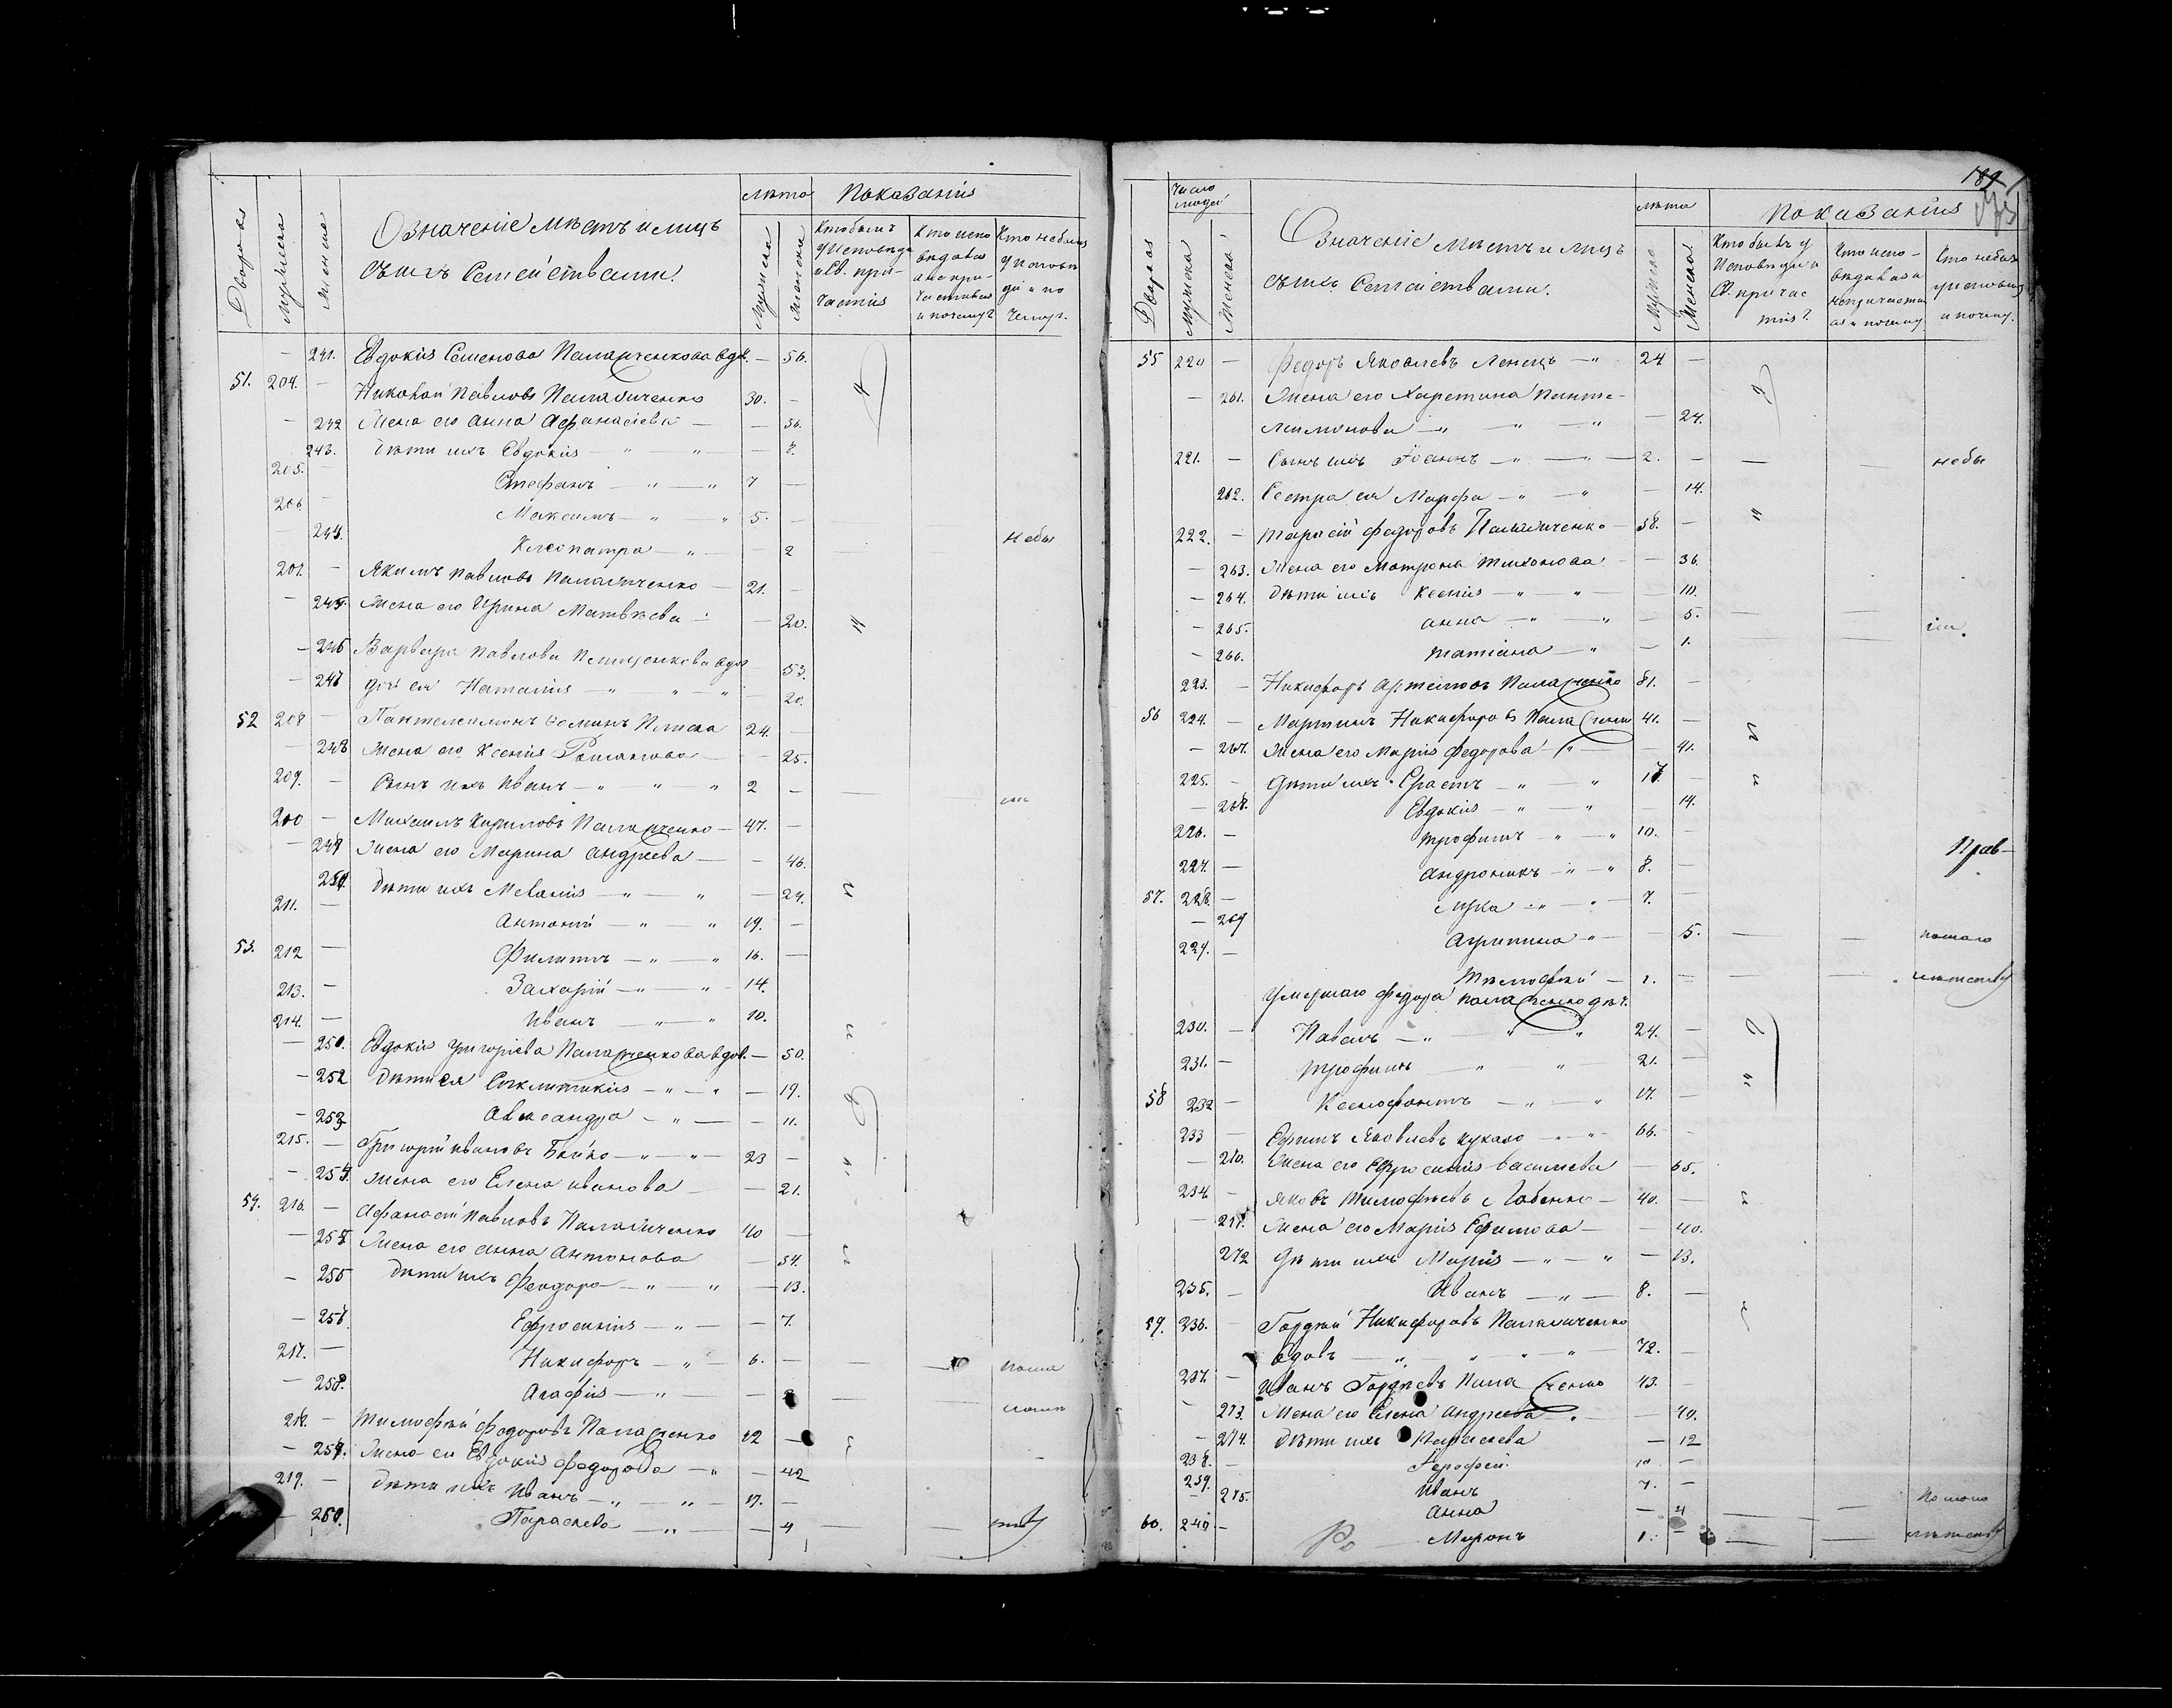 Дворовъ Мужеска Женска Означеніе мѣстъ и лицъ съ ихъ Семействами. лѣта Мужеска Женска Показанія
Кто былъ у Исповѣди и Св. причастія
Кто исповѣдался а не причастился и почему?
Кто небылъ у исповѣди и по чему.
— 241. Евдокія Семенова Паламаренкова вдов. — 56.
51. 204. — Николай Павловъ Паламаренко 30. —
— 242 Жена его Анна Афанасіева — — 36.
243. Дѣти ихъ Евдокія — " — " — 8.
205. Стефанъ — " — " 7 —
206. — Максимъ — " — " 5. —
244. Клеопатра — " — — 2 небы
207. — Якимъ Павловъ Паламаренко — 21. —
— 245. Жена его Ирина Матвѣева — — 20.
— 246 Варвара Павлова вдов — 53.
— 247 Дочь ея Наталія — " — " — " 20.
52 208 — Пантелеимонъ Плиска 24.
— 248 Жена его Ксенія Романова — — 25.
209. — Сынъ ихъ Иванъ — " — " — " 2 — —
200 — Михаилъ Кириловъ Паламаренко — 47. —
— 249 Жена его Марина Андреева — — 46.
250. Дѣти ихъ Меланія — " — " — 24.
211. — Антоній — " — " 19. —
53. 212 — Филиппъ — " — " 16. —
213. — Захарій — " — " 14.
214. — Иванъ — " — " 10.
— 251. Евдокія Григоріева Паламаренкова вдов. — 50.
— 252 Дѣти ея Синклитикія — " — " — 19.
— 253 Александра — " — — 11.
215. — Григорій Ивановъ Бойко — " — " — 23 —
— 254. Жена его Елена Иванова — — 21.
54. 216. — Афанасій Павловъ Паламаренко 40 —
— 255 Жена его Анна Антонова — 34.
— 256 Дѣти ихъ Феодора — " — " — 13.
— 257 Ефросинія — " — — 7.
217. — Никифоръ — " — 6. — —
— 258. Агафія — " — — —
218. — Тимофей Федоровъ Паламаренко 42 —
— 259. Жена его Евдокія Федорова — " — 42
219. — Дѣти ихъ Иванъ — " — " — 17. —
— 260. Параскева — " — — 4 — —
189
Дворовъ Число людей Мужеска Женска Означеніе мѣстъ и лицъ съ ихъ Семействами. лѣта Мужеска Женска Показанія
Кто былъ у Исповѣди и Св. причастія?
Кто исповѣдался а не причастился и почему
Кто небылъ у исповѣди и почему.
55 220 — Федоръ Яковлевъ — " 24 —
— 261. Жена его Харетина Пантелеимонова — " — " — " — 24.
221. — Сынъ ихъ Іоаннъ — " — " — 2. — — — небы
262. Сестра ея Марфа — " — " — 14.
222. — Тарасій Федоровъ Паламаренко — 38. —
— 263. Жена его Матрона Тихонова — — 36.
— 264. Дѣти ихъ Ксенія — " — " — — 10.
— 265. Анна — " — " — 5. — —
— 266. Татіана — " — 1. — —
223. — Никифоръ Артемовъ Паламаренко 81. —
56 224. — Мартинъ Никифоровъ Паламаренко 41. —
— 267. Жена его Марія Федорова — " — — 41.
225. — Дѣти ихъ Ерастъ — " — " 17. —
— 268. Евдокія — " — " — 14.
226. — Трофимъ — " — " 10. —
227. — Андроникъ — " — " 8. —
57. 228. — Лука — " — " — 7. —
— 269 Агрипина " — — 5. — — помало
229. — Тимофей — 1. — — — лѣтству
Умершаго Федора Паламаренко дѣт.
230. — Павелъ — " " " 24. —
231. — Трофимъ — " — " 21. —
58 232 — Ксенофонтъ — " — " 17. —
233 — Ефимъ Яковлевъ Кукало — " — " 66. —
— 270. Жена его Ефросинія Васильева — 65.
234. — Яковъ Тимофеевъ — 40. —
— 271. Жена его Марія Ефимова — — 40.
272 Дѣти ихъ Марія — " — " — 13.
235. — Иванъ — " — 8. —
59. 236. — Гордѣй Никифоровъ Паламаренко
вдовъ — " — " — " — " — 72. —
237. — Иванъ Гордѣевъ Паламаренко 43. —
— 273. Жена его Елена Андреева " — 40.
— 274. Дѣти ихъ Параскева — 12
238. — Іерофей 10 —
239. — Иванъ 7. —
275. Анна — 4 — — По мало
60. 240. — Миронъ 1. — — — лѣтству